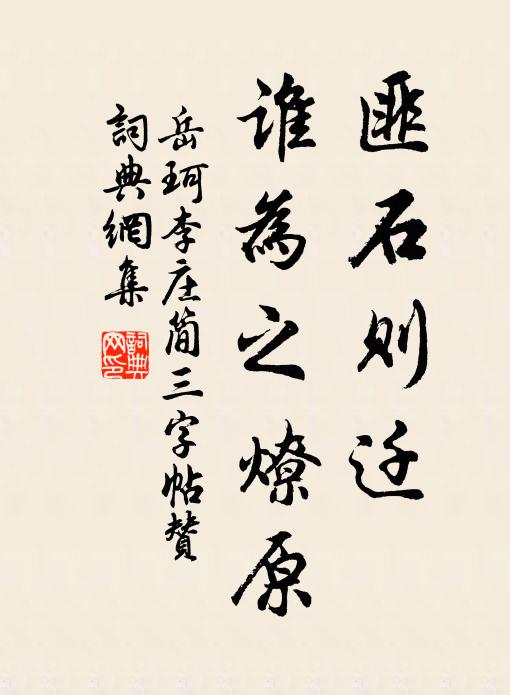 匪石则迁
谁為之燎原
岳珂李庄简三字帖贊
詞典網集
詞典网印